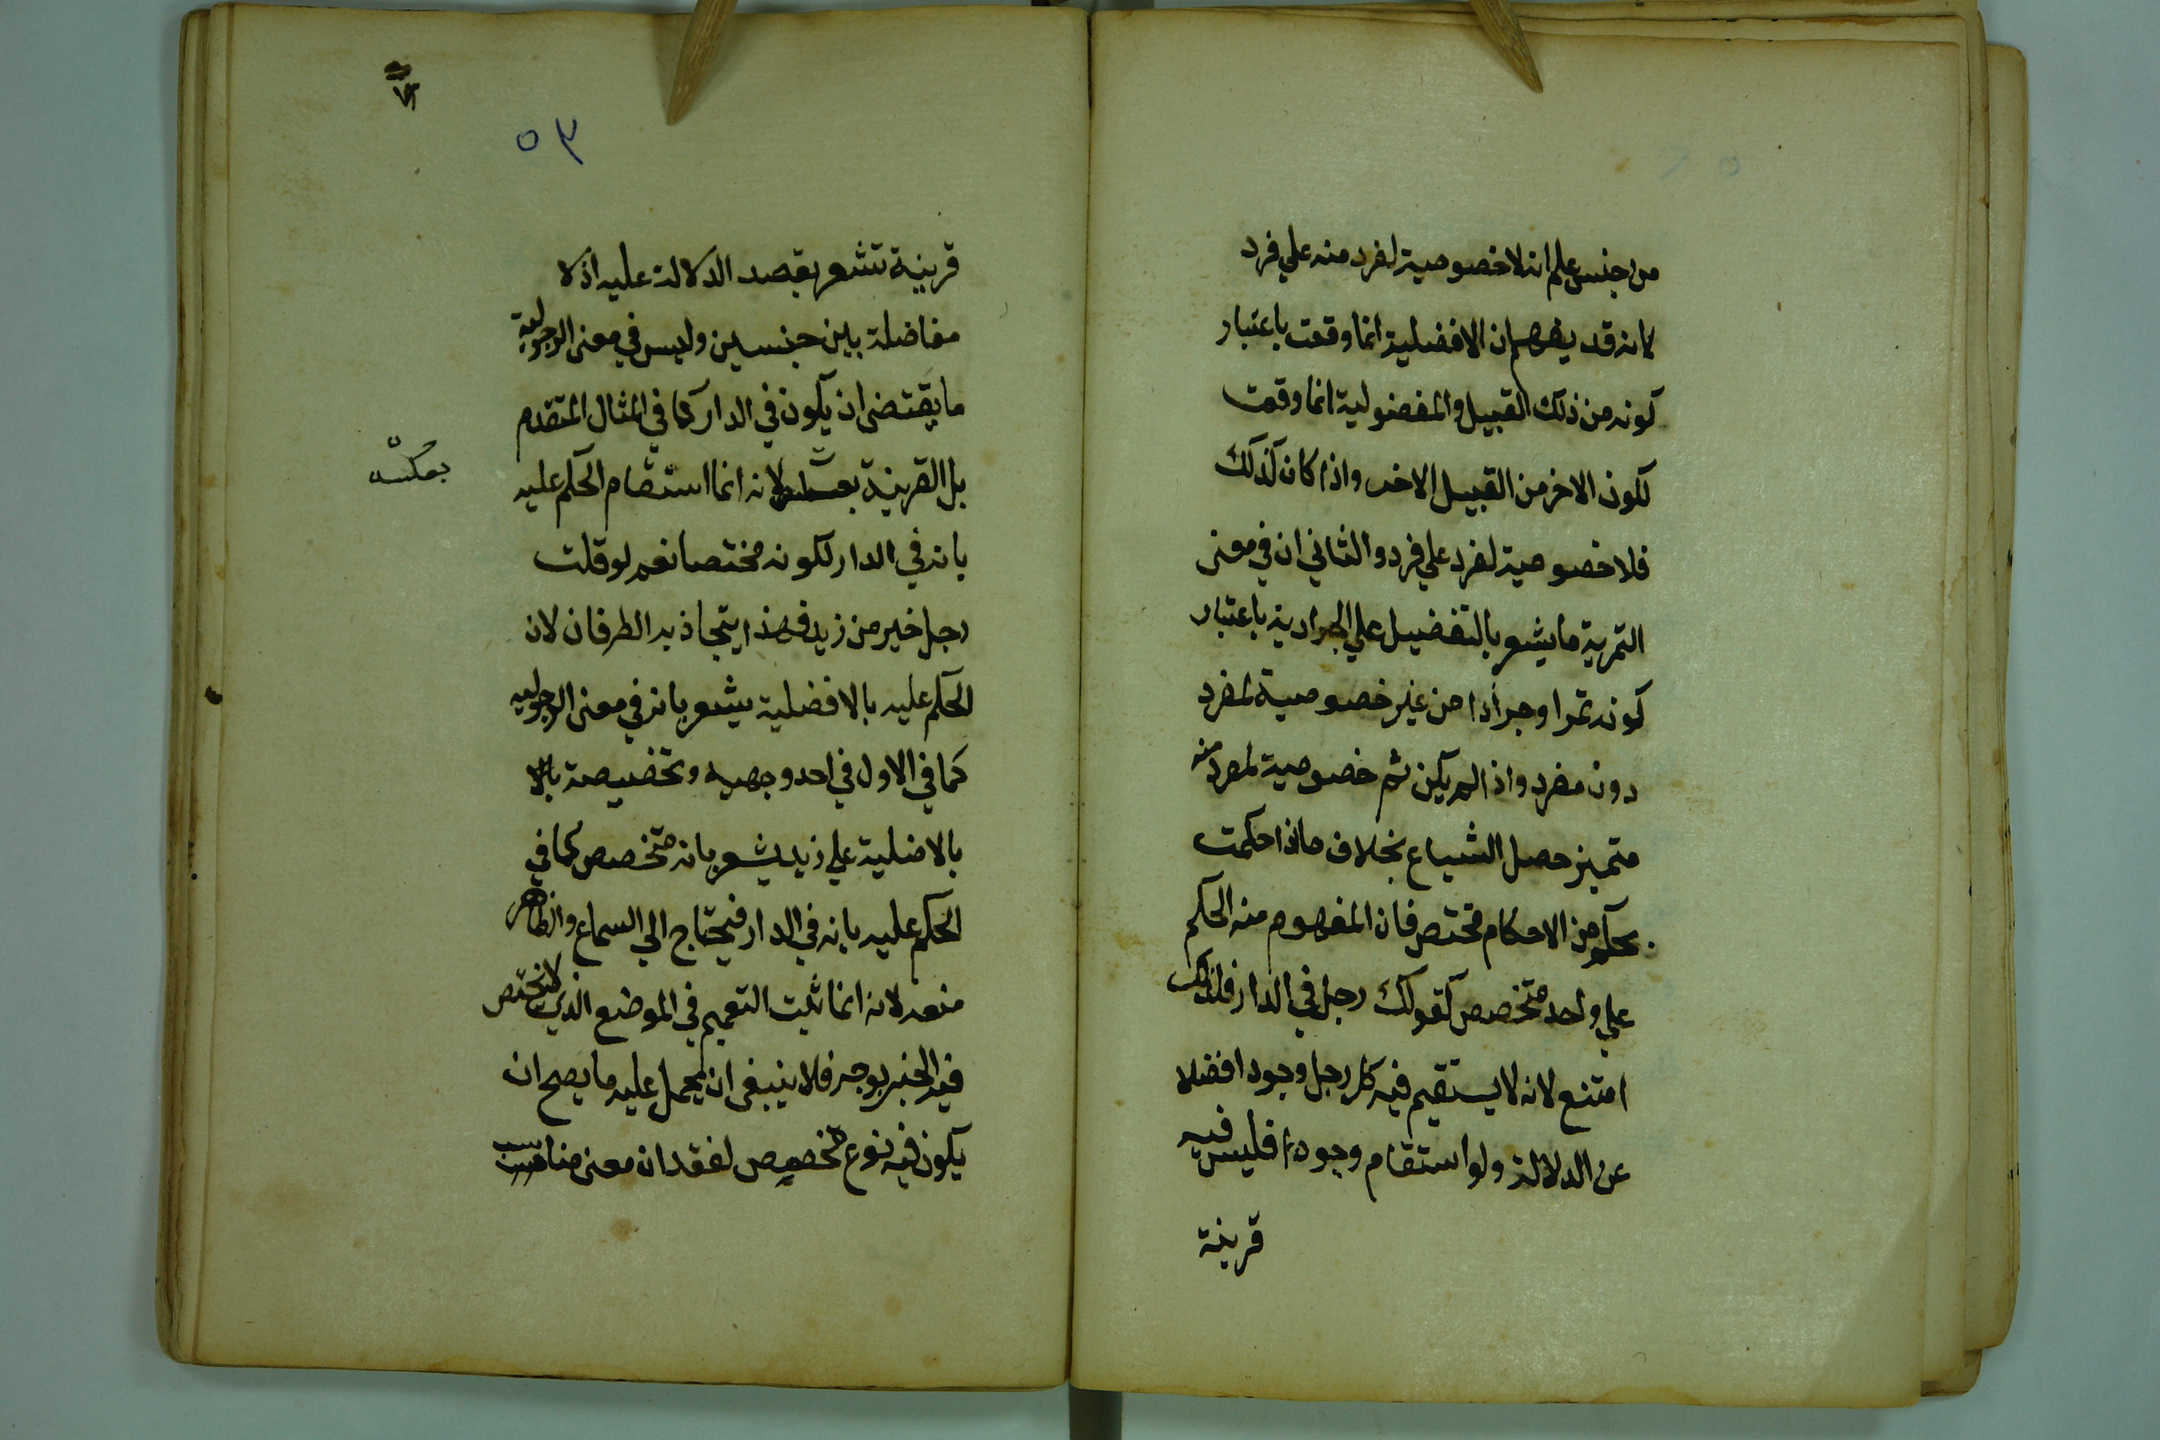 من جنس علم انه لا خصوصية لفرد منه علي فرد
لانه قد يفهم ان الافضلية انما وقعت باعتبار
كونه من ذلك القبيل والمفضولية انما وقعت
لكون الاخر من القبيل الاخر واذا كان كذلك
فلا خصوصية لفرد علي فرد والثاني ان في معنى
التمرية ما يشعر بالتفضيل علي الجرادية باعتبار
كونه تمرا وجرادا من غير خصوصية لمفرد
دون مفرد واذا لم يكن ثم خصوصية لمفرد منه
متميز حصل الشياع بخلاف ما اذا حكمت
بحكم من الاحكام مختص فان المفهوم منه الحكم
علي واحد متخصص كقولك رجل في الدار فلذلك
امتنع لانه لا يستقيم فيه كل رجل وجودا فضلا
عن الدلالة ولو استقام وجودا فليس فيه
قرينة
٥٣
قرينة تشعر بقصد الدلالة عليه اذ لا
مفاضلة بين جنسين وليس في معنى الرجولية
ما يقتضى ان يكون في الدار كما في المثال المتقدم
بل القرينة لانه انما استقام الحكم عليه
بعكسه
بانه في الدار لكونه مختصا نعم لو قلت
رجل خير من زيد فهذا يتجاذبه الطرفان لان
الحكم عليه بالافضلية يشعر بانه في معنى الرجولية
كما في الاول في احد وجهيه وتخصيصة بالا
بالافضلية علي زيد يشعر بانه متخصص كما في
الحكم عليه بانه في الدار فيحتاج الي السماع والظاهر
منعه لانه انما ثبت التعميم في الموضع الذي لا يختص
فيه الخبر بوجه فلا ينبغى ان يحمل عليه ما يصح ان
يكون فيه نوع تخصيص لفقدان معنى مناسب